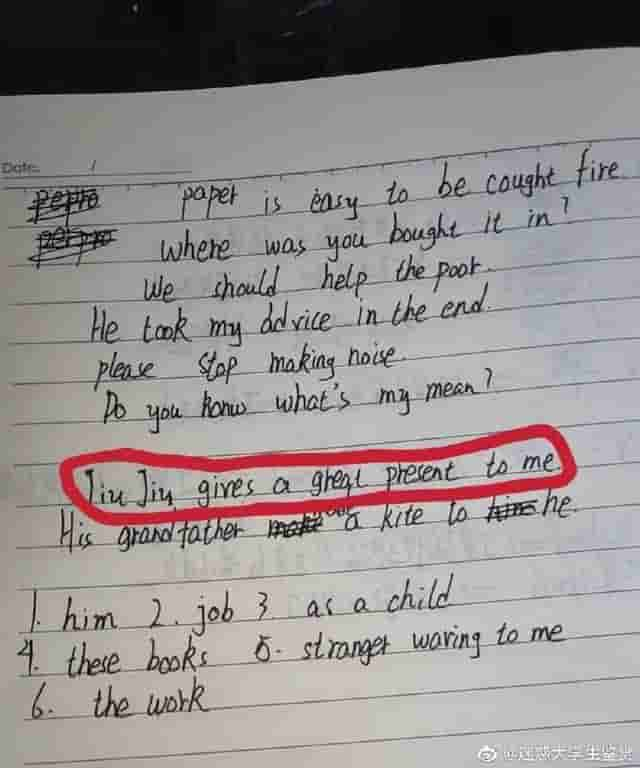 Date: /
paper is easy to be cought fire
where was you bought it in?
We should help the poor.
He took my advice in the end.
please stop making noise.
Do you konw what's my mean?
Jiu Jiu gives a great present to me.
His grandfather a kite to he.
1. him 2. job 3. as a child
4. these books 5. stranger waving to me
6. the work
@迷惑大学生鉴赏